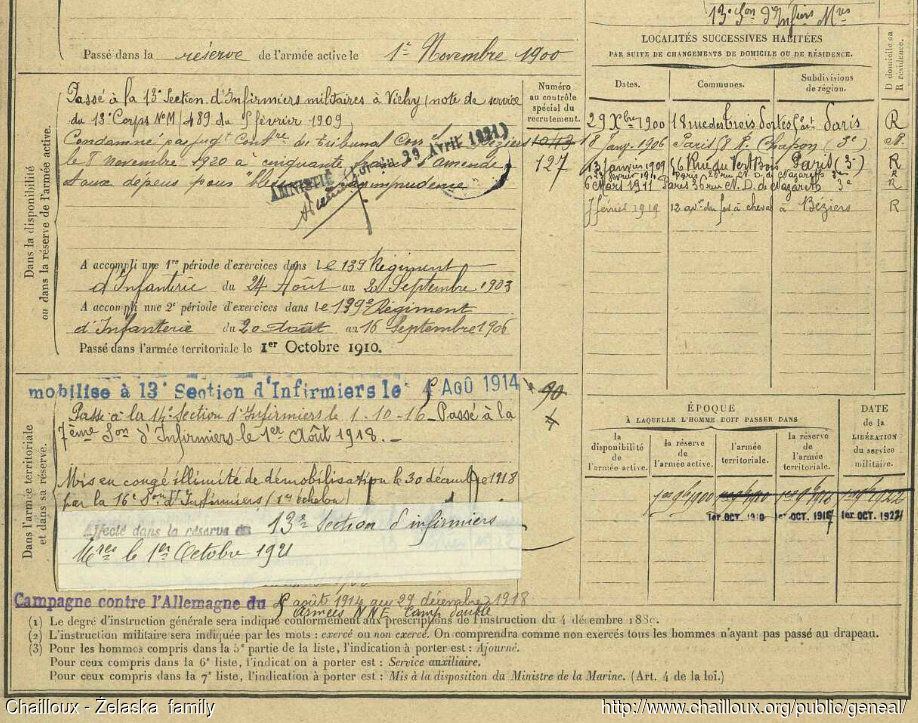 13e Son d'Infiers Mres
Passé dans la réserve de l'armée active le 1er Novembre 1900
Passé à la 13e Section d'Infirmiers militaires à Vichy (note de service
du 13e Corps No M/489 du février 1909
Condamné par jugt Contre de Tribunal Béziers
le 8 novembre 1920 à cinquante francs d'amende
et aux dépens pour imprudence
AMNISTIÉ (Loi du 29 Avril 1921)
A accompli une 1re période d'exercices dans le 139e Régiment
d'Infanterie du 24 Aout au Septembre 1903
A accompli une 2e période d'exercices dans le 139e Régiment
d'Infanterie du 20 Août au 16 Septembre 1906
Passé dans l'armée territoriale le 1er Octobre 1910.
Dans la disponibilité
ou dans la réserve de l'armée active.
Numéro
au contrôle
spécial du
recrutement.
1042
127
90
LOCALITÉS SUCCESSIVES HABITÉES
PAR SUITE DE CHANGEMENTS DE DOMICILE OU DE RÉSIDENCE.
Dates.
Communes.
Subdivisions
de région.
D domicile ou
R résidence.
29 Xbre 1900 18 rue des Trois Paris R
18 janv. 1906 Paris Chapon (3e)
13 janvier 1909 Rue du Vertbois Paris (3e) R
Paris N. D. de Nazareth
6 Mars 1911 Paris 36 rue N. D. de Nazareth 3e R
février 1919 12 du fer à cheval à Béziers R
mobilisé à 13e Section d'Infirmiers le AOÛ 1914
Passé à la 14e Section d'Infirmiers le 1-10-16 Passé à la
7ème Son d'Infirmiers le 1er Août 1918.
Mis en congé illimité de démobilisation le 30 décembre 1918
par la 16e Son d'Infirmiers (1er échelon)
Affecté dans la réserve de 13e Section d'infirmiers
Mres le 1er Octobre 1921
Dans l'armée territoriale
et dans sa réserve.
ÉPOQUE
À LAQUELLE L'HOMME DOIT PASSER DANS
la
disponibilité
de
l'armée active.
la réserve
de
l'armée active.
l'armée
territoriale.
la réserve
de
l'armée
territoriale.
DATE
de la
LIBÉRATION
du service
militaire.
1er 9bre 1900
1er OCT. 1910
1er OCT. 1916
1er OCT. 1922
Campagne contre l'Allemagne du août 1914 au 29 décembre 1918
Armées N NE
(1) Le degré d'instruction générale sera indiqué conformément aux prescriptions de l'instruction du 4 décembre 1889.
(2) L'instruction militaire sera indiquée par les mots : exercé ou non exercé. On comprendra comme non exercés tous les hommes n'ayant pas passé au drapeau.
(3) Pour les hommes compris dans la 5e partie de la liste, l'indication à porter est : Ajourné.
Pour ceux compris dans la 6e liste, l'indication à porter est : Service auxiliaire.
Pour ceux compris dans la 7e liste, l'indication à porter est : Mis à la disposition du Ministre de la Marine. (Art. 4 de la loi.)
Chailloux - Żelaska family
http://www.chailloux.org/public/geneal/